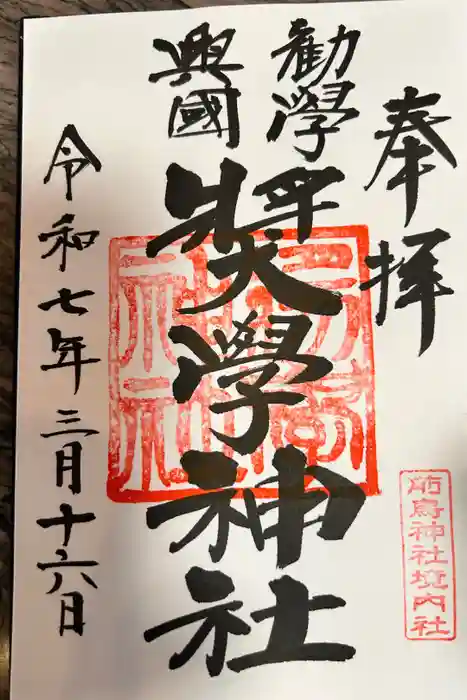 奉拝
勸學
興國
奨學神社
令和七年三月十六日
前鳥神社境内社